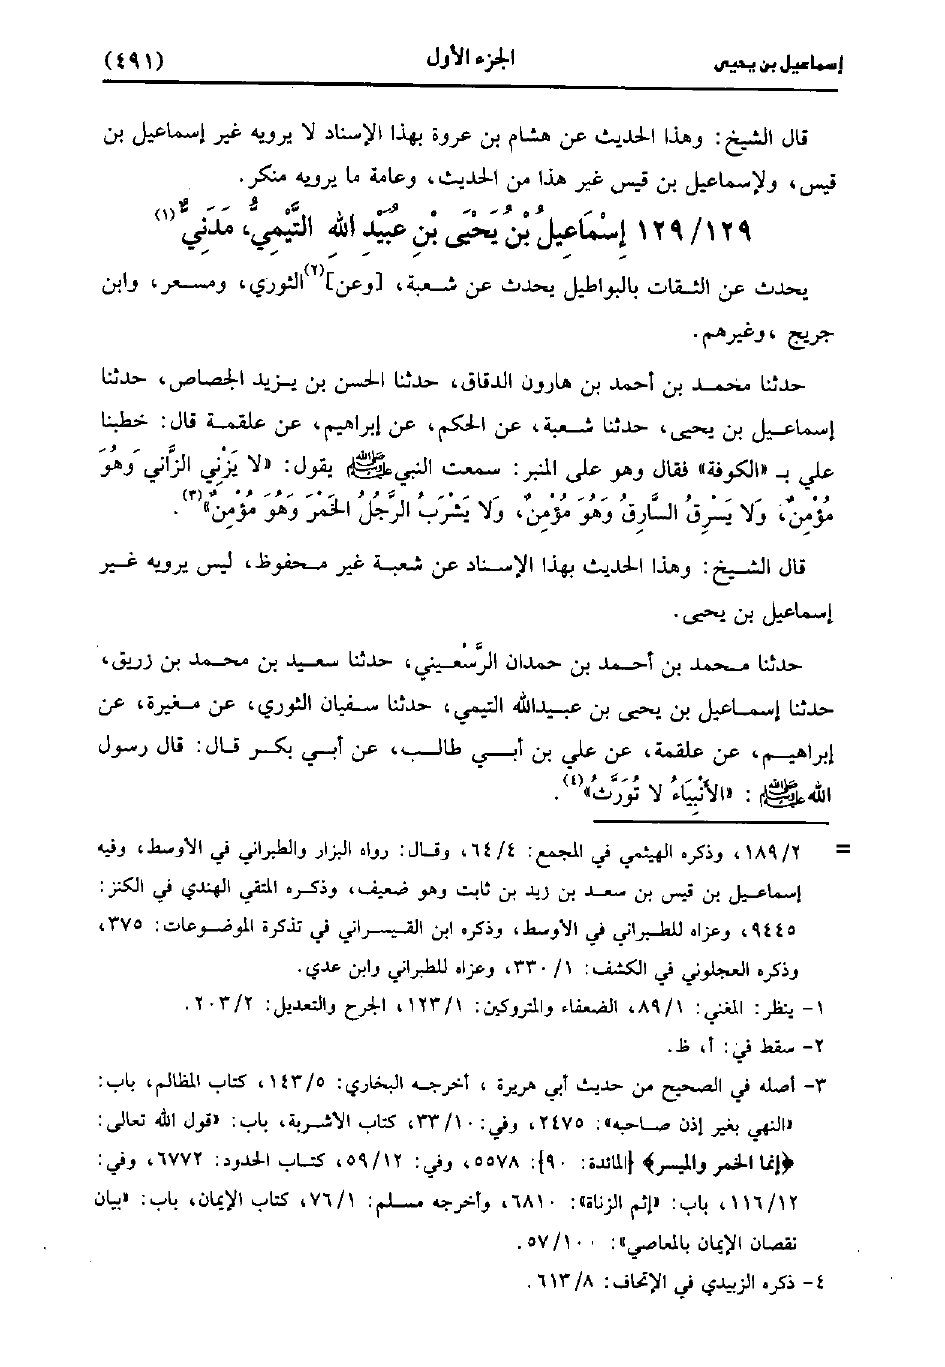 إسماعيل بن يحيى
الجزء الأول
(٤٩١)
قال الشيخ: وهذا الحديث عن هشام بن عروة بهذا الإسناد لا يرويه غير إسماعيل بن
قيس، ولإسماعيل بن قيس غير هذا من الحديث، وعامة ما يرويه منكر.
١٢٩/١٢٩ إِسْمَاعِيلُ بْنُ يَحْيَى بْنِ عُبَيْدِ اللهِ التَّيْمِي، مَدَنِيٌّ(١)
يحدث عن الثقات بالبواطيل يحدث عن شعبة، [وعن](٢) الثوري، ومسعر، وابن
جريج، وغيرهم.
حدثنا محمد بن أحمد بن هارون الدقاق، حدثنا الحسن بن يزيد الجصاص، حدثنا
إسماعيل بن يحيى، حدثنا شعبة، عن الحكم، عن إبراهيم، عن علقمة قال: خطبنا
علي بـ «الكوفة» فقال وهو على المنبر: سمعت النبي ﷺ يقول: «لا يَزْنِي الزَّانِي وَهُوَ
مُؤْمِنٌ، وَلَا يَسْرِقُ السَّارِقُ وَهُوَ مُؤْمِنٌ، وَلَا يَشْرَبُ الرَّجُلُ الخَمْرَ وَهُوَ مُؤْمِنٌ»(٣).
قال الشيخ: وهذا الحديث بهذا الإسناد عن شعبة غير محفوظ، ليس يرويه غير
إسماعيل بن يحيى.
حدثنا محمد بن أحمد بن حمدان الرَّسْعيني، حدثنا سعيد بن محمد بن زريق،
حدثنا إسماعيل بن يحيى بن عبيدالله التيمي، حدثنا سفيان الثوري، عن مغيرة، عن
إبراهيم، عن علقمة، عن علي بن أبي طالب، عن أبي بكر قال: قال رسول
الله ﷺ: «الأَنْبِيَاءُ لا تُوَرَّثُ»(٤).
= ١٨٩/٢، وذكره الهيثمي في المجمع: ٦٤/٤، وقال: رواه البزار والطبراني في الأوسط، وفيه
إسماعيل بن قيس بن سعد بن زيد بن ثابت وهو ضعيف، وذكره المتقي الهندي في الكنز:
٩٤٤٥، وعزاه للطبراني في الأوسط، وذكره ابن القيسراني في تذكرة الموضوعات: ٣٧٥،
وذكره العجلوني في الكشف: ٣٣٠/١، وعزاه للطبراني وابن عدي.
١- ينظر: المغني: ٨٩/١، الضعفاء والمتروكين: ١٢٣/١، الجرح والتعديل: ٢٠٣/٢.
٢- سقط في: أ، ظ.
٣- أصله في الصحيح من حديث أبي هريرة ، أخرجه البخاري: ١٤٣/٥، كتاب المظالم، باب:
«النهي بغير إذن صاحبه»: ٢٤٧٥، وفي: ٣٣/١٠، كتاب الأشربة، باب: «قول الله تعالى:
﴿إنما الخمر والميسر﴾ [المائدة: ٩٠]: ٥٥٧٨، وفي: ٥٩/١٢، كتاب الحدود: ٦٧٧٢، وفي:
١١٦/١٢، باب: «إثم الزناة»: ٦٨١٠، وأخرجه مسلم: ٧٦/١، كتاب الإيمان، باب: «بيان
نقصان الإيمان بالمعاصي»: ٥٧/١٠٠.
٤- ذكره الزبيدي في الإتحاف: ٦١٣/٨.